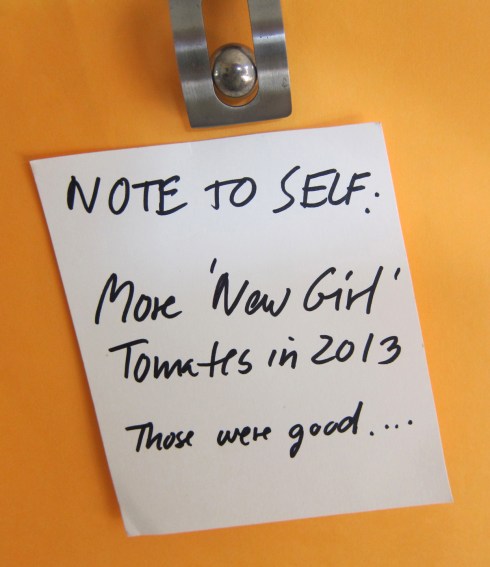 NOTE TO SELF:
More 'New Girl'
Tomates in 2013
Those were good....